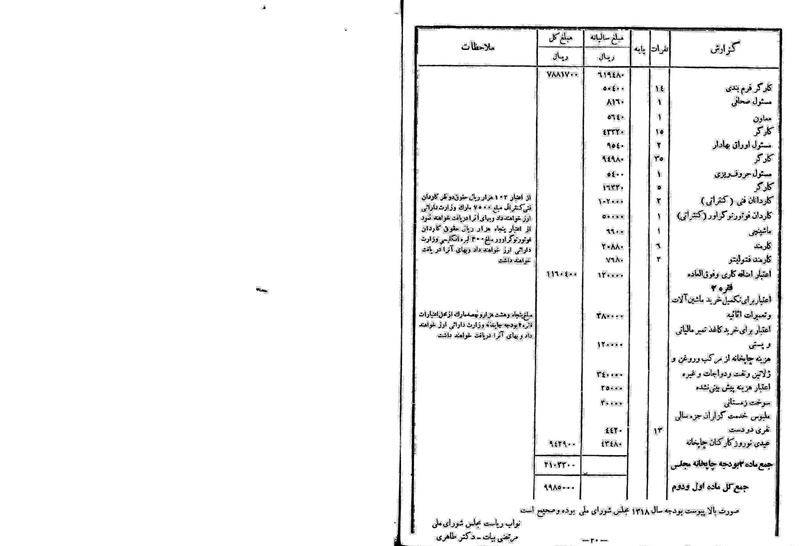 گزارش نفرات پایه مبلغ سالیانه مبلغ کل ملاحظات
ریال ریال
۶۱۹۴۸۰ ۷۸۸۱۷۰۰
کارگر فرم بندی ۱٤ ۵۰٤۰۰
مسئول صحافی ۱ ۸۱۶۰
معاون ۱ ۵۶٤۰
کارگر ۱۵ ٤۳۲۲۰
مسئول اوراق بهادار ۲ ۹۵٤۰
کارگر ۳۵ ۹٤۹۸۰
مسئول حروفریزی ۱ ۵٤۰۰
کارگر ۵ ۱۶۳۲۰
کاردانان فنی (کنتراتی) ۲ ۱۰۲۰۰۰
کاردان فوتورتوگراور (کنتراتی) ۱ ۵۰۰۰۰
ماشینچی ۱ ۶۹۰۰
کارمند ۶ ۲۰۸۸۰
کارمند فتولیتو ۲ ۷۶۸۰
اعتبار اضافه کاری و فوق‌العاده ۱۲۰۰۰۰ ۱۱۶۰٤۰۰
از اعتبار ۱۰۲ هزار ریال حقوق دو نفر کاردان
فنی کنتراتی مبلغ ۷۵۰۰ مارک وزارت دارائی
ارز خواهند داد و بهای آنرا دریافت خواهند نمود
از اعتبار پنجاه هزار ریال حقوق کاردان
فوتورتوگراور مبلغ ۳۰۰ لیره انگلیسی وزارت
دارائی ارز خواهند داد و بهای آنرا دریافت
خواهند داشت
فقره ۲
اعتبار برای تکمیل خرید ماشین آلات
و تعمیرات اثاثیه ۳۸۰۰۰۰
اعتبار برای خرید کاغذ تمبر مالیاتی
و پستی ۱۲۰۰۰۰
هزینه چاپخانه از مرکب و روغن و
ژلاتین و نفت و دواجات و غیره ۳٤۰۰۰۰
اعتبار هزینه پیش بینی نشده ۲۵۰۰۰
سوخت زمستانی ۳۰۰۰۰
ملبوس خدمت گزاران جزء سالی
نفری دو دست ۱۳ ٤٤۲۰
عیدی نوروز کارکنان چاپخانه ٤۳٤۸۰ ۹٤۲۹۰۰
مبلغ پنجاه و هشت هزار و نهصد مارک از محل اعتبارات
فقره ۲ بودجه چاپخانه وزارت دارائی ارز خواهند
داد و بهای آنرا دریافت خواهند داشت
جمع ماده ۲ بودجه چاپخانه مجلس ۲۱۰۳۳۰۰
جمع کل ماده اول و دوم ۹۹۸۵۰۰۰
صورت بالا پیوست بودجه سال ۱۳۱۸ مجلس شورای ملی بوده و صحیح است
نواب ریاست مجلس شورای ملی
مرتضی بیات - دکتر طاهری
-۲۰-